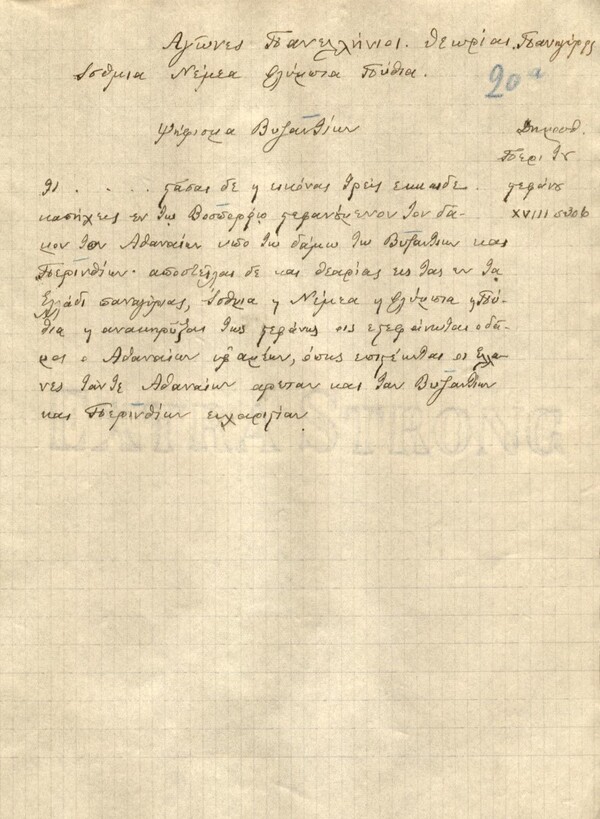 Αγῶνες Πανελλήνιοι. Θεωρίαι. Πανηγύρεις
Ισθμια Νέμεα Ολύμπια Πύθια.
20α
Ψήφισμα Βυζαντίων
Δημοσθ.
Περὶ του
στεφάνου
XVIII
στᾶσαι δε η εικόνας τρεῖς εκκαιδε
καπήχεις εν τω Βοσπορῳ στεφανούμενον τον δᾶ
μον τον Αθαναίων υπο τω δάμω τω Βυζαντίων και
Περινθίων. αποστεῖλαι δε και θεαρίας ες τας εν τᾳ
Ελλάδι παναγύριας, Ισθμια η Νέμεα η Ολύμπια η Πύ
θια η ανακηρῦξαι τως στεφάνως οις εστεφάνωται ο δᾶ
μος ο Αθαναίων υφ αμέων, όπως επιστέωνται οι Ελλα
νες τάν τε Αθαναίων αρεταν και ταν Βυζαντίων
και Περινθίων ευχαριστίαν
EXTRA STRONG